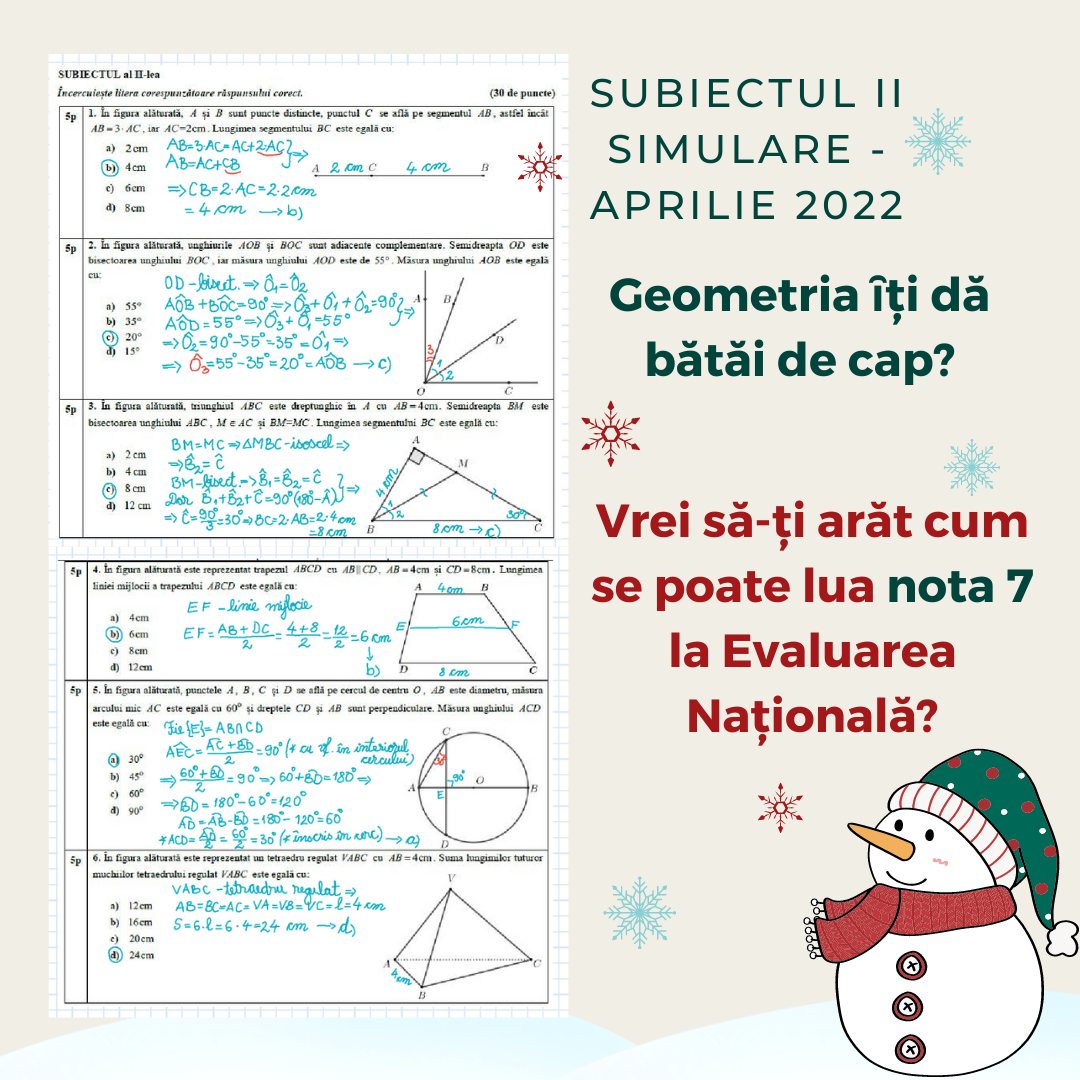 SUBIECTUL al II-lea
Încercuiește litera corespunzătoare răspunsului corect. (30 de puncte)
5p 1. În figura alăturată, A și B sunt puncte distincte, punctul C se află pe segmentul AB, astfel încât
AB = 3·AC, iar AC=2cm. Lungimea segmentului BC este egală cu:
a) 2cm
b) 4cm
c) 6cm
d) 8cm
AB=3·AC=AC+2·AC
AB=AC+CB } =>
=>CB=2·AC=2·2cm
=4cm ->b)
A 2cm C 4cm B
5p 2. În figura alăturată, unghiurile AOB și BOC sunt adiacente complementare. Semidreapta OD este
bisectoarea unghiului BOC, iar măsura unghiului AOD este de 55°. Măsura unghiului AOB este egală
cu:
a) 55°
b) 35°
c) 20°
d) 15°
OD-bisect. => Ô1=Ô2
AÔB+BÔC=90° => Ô3+Ô1+Ô2=90°
AÔD=55° => Ô3+Ô1=55° } =>
=> Ô2=90°-55°=35°=Ô1 =>
=> Ô3=55°-35°=20°=AÔB ->c)
A B D O C 3 1 2
5p 3. În figura alăturată, triunghiul ABC este dreptunghic în A cu AB=4cm. Semidreapta BM este
bisectoarea unghiului ABC, M ∈ AC și BM=MC. Lungimea segmentului BC este egală cu:
a) 2cm
b) 4cm
c) 8cm
d) 12cm
BM=MC => ΔMBC-isoscel =>
=>B̂2=Ĉ
BM-bisect.=>B̂1=B̂2=Ĉ
Dar B̂1+B̂2+Ĉ=90°(180°-Â) } =>
=> Ĉ=90°/3=30° => BC=2·AB=2·4cm
=8cm
A M B C 4cm 1 2 30° 8cm ->c)
5p 4. În figura alăturată este reprezentat trapezul ABCD cu AB||CD, AB=4cm și CD=8cm. Lungimea
liniei mijlocii a trapezului ABCD este egală cu:
a) 4cm
b) 6cm
c) 8cm
d) 12cm
EF-linie mijlocie
EF=AB+DC/2=4+8/2=12/2=6cm
↓
b)
A 4cm B
E 6cm F
D 8cm C
5p 5. În figura alăturată, punctele A, B, C și D se află pe cercul de centru O, AB este diametru, măsura
arcului mic AC este egală cu 60° și dreptele CD și AB sunt perpendiculare. Măsura unghiului ACD
este egală cu:
a) 30°
b) 45°
c) 60°
d) 90°
Fie{E}=AB∩CD
AÊC=AC+BD/2=90°(∢ cu vf. în interiorul
cercului)
=> 60°+BD/2=90° => 60°+BD=180° =>
=>BD=180°-60°=120°
AD=AB-BD=180°-120°=60°
∢ACD=AD/2=60°/2=30°(∢ înscris în cerc) ->a)
C 30° 90° A E O B D
5p 6. În figura alăturată este reprezentat un tetraedru regulat VABC cu AB=4cm. Suma lungimilor tuturor
muchiilor tetraedrului regulat VABC este egală cu:
a) 12cm
b) 16cm
c) 20cm
d) 24cm
VABC-tetraedru regulat =>
AB=BC=AC=VA=VB=VC=l=4cm
S=6·l=6·4=24cm ->d)
V A C B 4cm
SUBIECTUL II
SIMULARE -
APRILIE 2022
Geometria îți dă
bătăi de cap?
Vrei să-ți arăt cum
se poate lua nota 7
la Evaluarea
Națională?